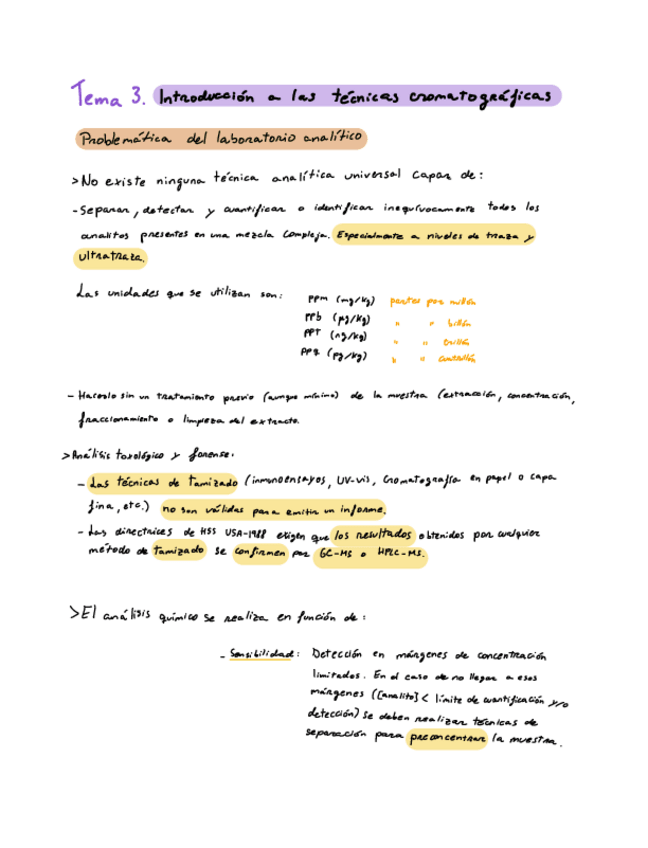 Tema 3. Introducción a las técnicas cromatográficas
Problemática del laboratorio analítico
> No existe ninguna técnica analítica universal capaz de:
- Separar, detectar y cuantificar o identificar inequívocamente todos los
analitos presentes en una mezcla compleja. Especialmente a niveles de traza y
ultratraza.
Las unidades que se utilizan son:
ppm (mg/kg) partes por millón
ppb (µg/kg) " " billón
ppt (ng/kg) " " trillón
ppq (pg/kg) " " cuatrillón
- Hacerlo sin un tratamiento previo (aunque mínimo) de la muestra (extracción, concentración,
fraccionamiento o limpieza del extracto.
> Análisis toxológico y forense.
- Las técnicas de tamizado (inmunoensayos, UV-vis, Cromatografía en papel o capa
fina, etc.) no son válidas para emitir un informe.
- Las directrices de HSS USA-1988 exigen que los resultados obtenidos por cualquier
método de tamizado se confirmen por GC-MS o HPLC-MS.
> El análisis químico se realiza en función de:
- Sensibilidad: Detección en márgenes de concentración
limitados. En el caso de no llegar a esos
márgenes ([analito] < límite de cuantificación y/o
detección) se deben realizar técnicas de
separación para preconcentrar la muestra.